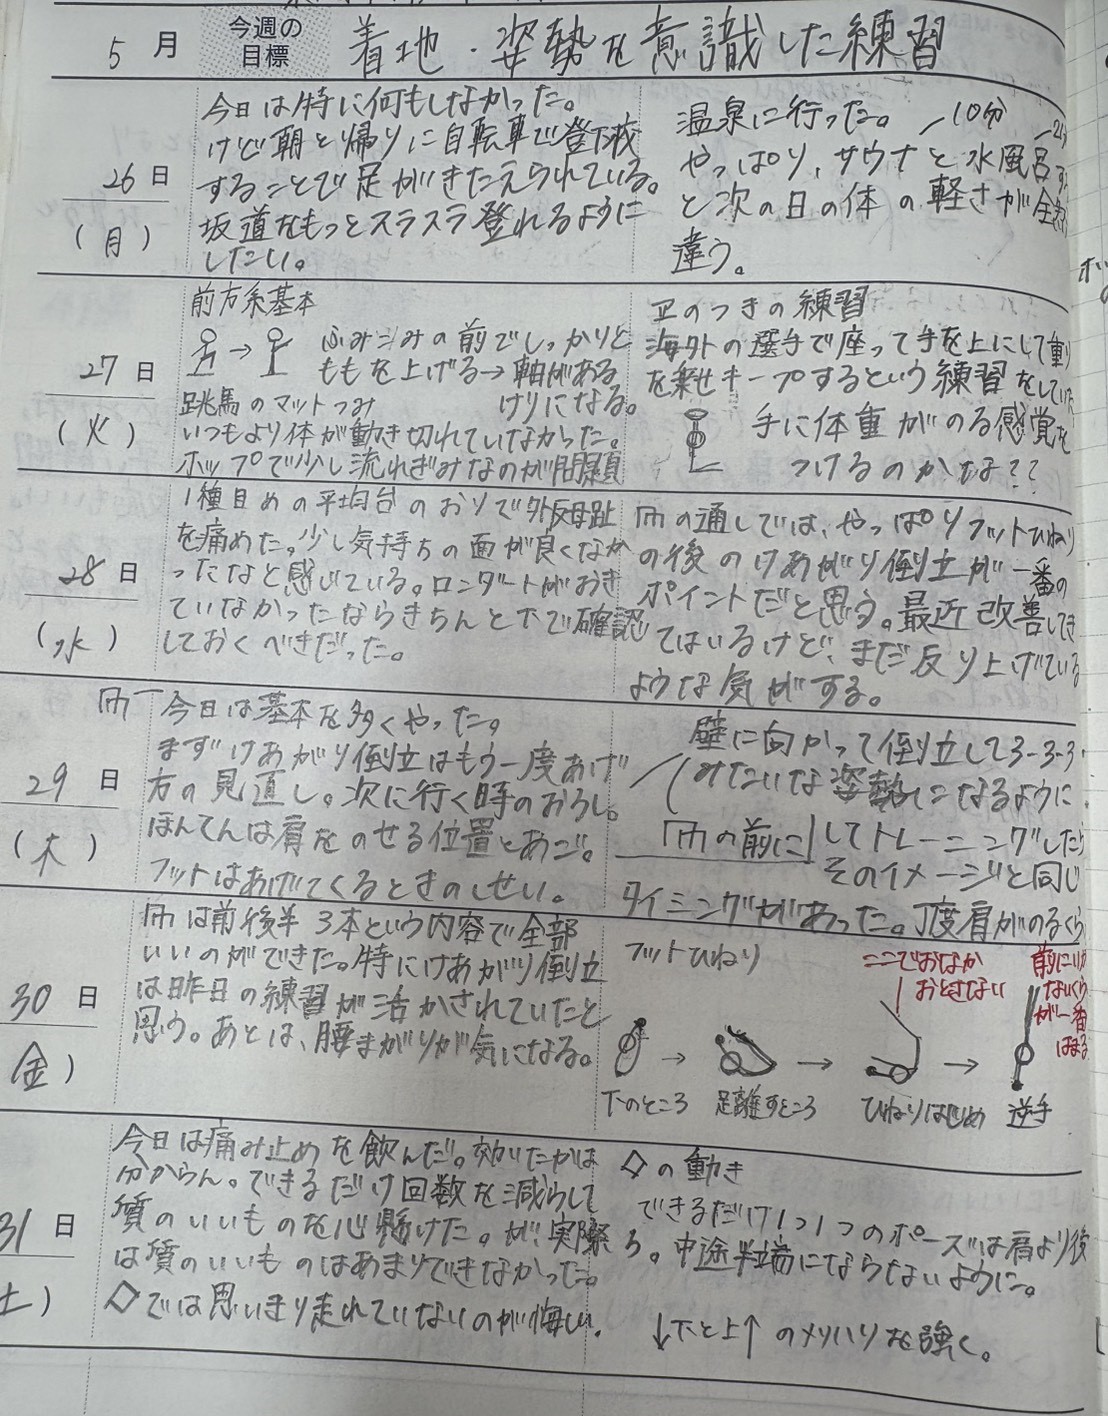 5 月
今週の
目標
着地・姿勢を意識した練習
26 日
(月)
今日は特に何もしなかった。
けど朝と帰りに自転車で登下校
することで足がきたえられている。
坂道をもっとスラスラ登れるように
したい。
温泉に行った。
10分
やっぱり、サウナと水風呂
と次の日の体の軽さが全然
違う。
27 日
(火)
前方系基本
→
ふみこみの前でしっかりと
ももを上げる→軸がある
けりになる。
跳馬のマットつみ
いつもより体が動き切れていなかった。
ホップで少し流れぎみなのが問題
のつきの練習
海外の選手で座って手を上にして重り
を乗せキープするという練習をしていた
手に体重がのる感覚を
つけるのかな??
28 日
(水)
1種目めの平均台のおりで外反母趾
を痛めた。少し気持ちの面が良くなか
ったなと感じている。ロンダートがおき
ていなかったならきちんと下で確認
しておくべきだった。
の通しでは、やっぱりフットひねり
の後のけあがり倒立が一番の
ポイントだと思う。最近改善してき
てはいるけど、まだ反り上げている
ような気がする。
29 日
(木)
今日は基本を多くやった。
まずけあがり倒立はもう一度あげ
方の見直し。次に行く時のおろし。
ほんてんは肩をのせる位置とあご。
フットはあげてくるときのしせい。
壁に向かって倒立して3-3-3
みたいな姿勢になるように
の前に してトレーニングしたら
そのイメージと同じ
タイミングがあった。丁度肩がのるくら
30 日
(金)
は前後半 3本という内容で全部
いいのができた。特にけあがり倒立
は昨日の練習が活かされていたと
思う。あとは、腰まがりが気になる。
フットひねり
ここでおなか
おとさない
前にいか
ないくら
が一番
はまる
→ → →
下のところ 足離すところ ひねりはじめ 逆手
31 日
土)
今日は痛み止めを飲んだ。効いたかは
分からん。できるだけ回数を減らして
質のいいものを心懸けた。が、実際
は質のいいものはあまりできなかった。
◇では思いきり走れていないのが悔しい。
◇の動き
できるだけ1つ1つのポーズは肩より後
ろ。中途半端にならないように。
↓下と上↑のメリハリを強く。